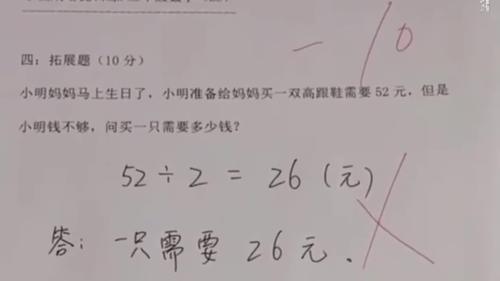 四：拓展题（10 分）
小明妈妈马上生日了，小明准备给妈妈买一双高跟鞋需要 52 元，但是
小明钱不够，问买一只需要多少钱？
52÷2＝26（元）
答：一只需要 26 元．
－10